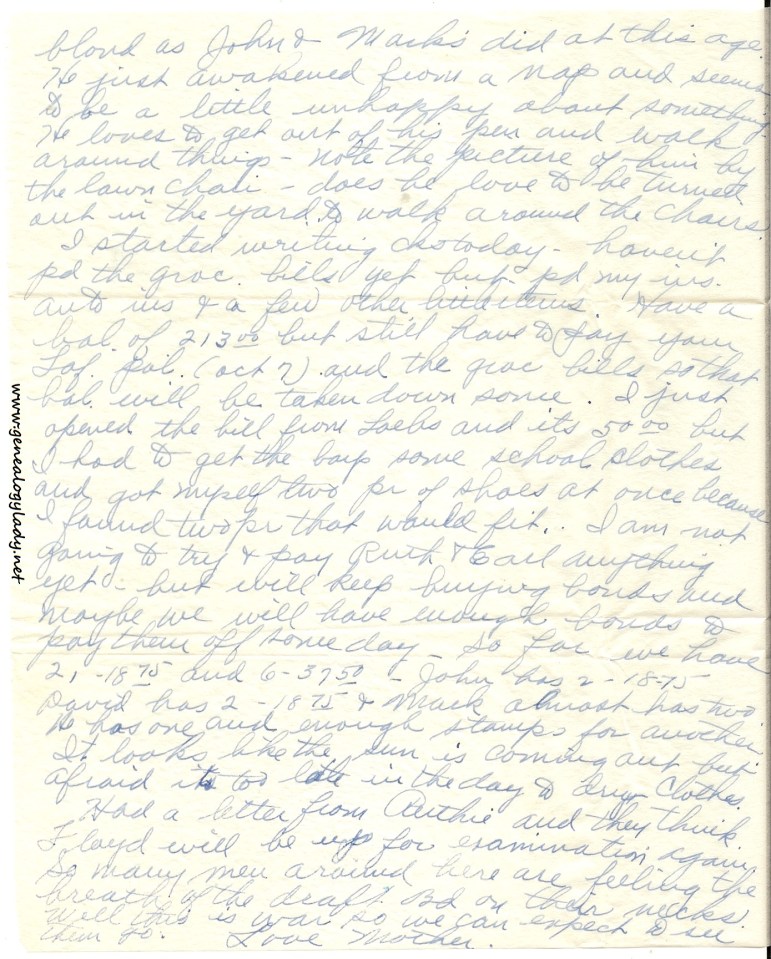 blond as John & Marks did at this age.
He just awakened from a nap and seems
to be a little unhappy about something.
He loves to get out of his pen and walk
around things - note the picture of him by
the lawn chair - does he love to be turned
out in the yard to walk around the chairs.
I started writing cks today - haven't
pd the groc. bills yet but pd my ins.
auto ins & a few other little items. Have a
bal. of 213 00 but still have to pay your
Laf. pol. (oct 7) and the groc bills so that
bal. will be taken down some. I just
opened the bill from Loebs and its 50 00 but
I had to get the boys some school clothes
and got myself two pr of shoes at once because
I found two pr that would fit. . I am not
going to try & pay Ruth & Earl anything
yet - but will keep buying bonds and
maybe we will have enough bonds to
pay them off some day - So far we have
21 - 18 75 and 6 - 37 50 - John has 2 - 18-75
David has 2 - 18 75 & Mark almost has two
He has one and enough stamps for another.
It looks like the sun is coming out but
afraid its too late in the day to dry clothes.
Had a letter from Ruthie and they think
Floyd will be up for examination again.
So many men around here are feeling the
breath of the draft Bd on their necks.
Well this is war so we can expect to see
them go. Love Mother.
www.genealogylady.net